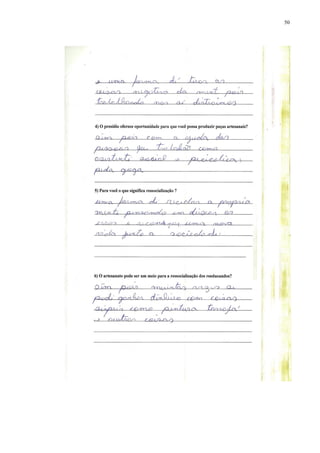 50
e uma forma di tirar as
coisas negativa da ment pois
trabalhando nos si distraimos
4) O presídio oferece oportunidade para que você possa produzir peças artesanais?
sim pois com a ajuda das
pessoas que trabalhão como
asistente social e
5) Para você o que significa ressocialização ?
uma forma di reciclar a propria
mente pensando em deixar os
e começar uma nova
vida junto a sociedade.
6) O artesanato pode ser um meio para a ressocialização dos reeducandos?
Sim pois muintas vezes si
podi ganhar dinheiro com coisas
como pintura
e outras coisas